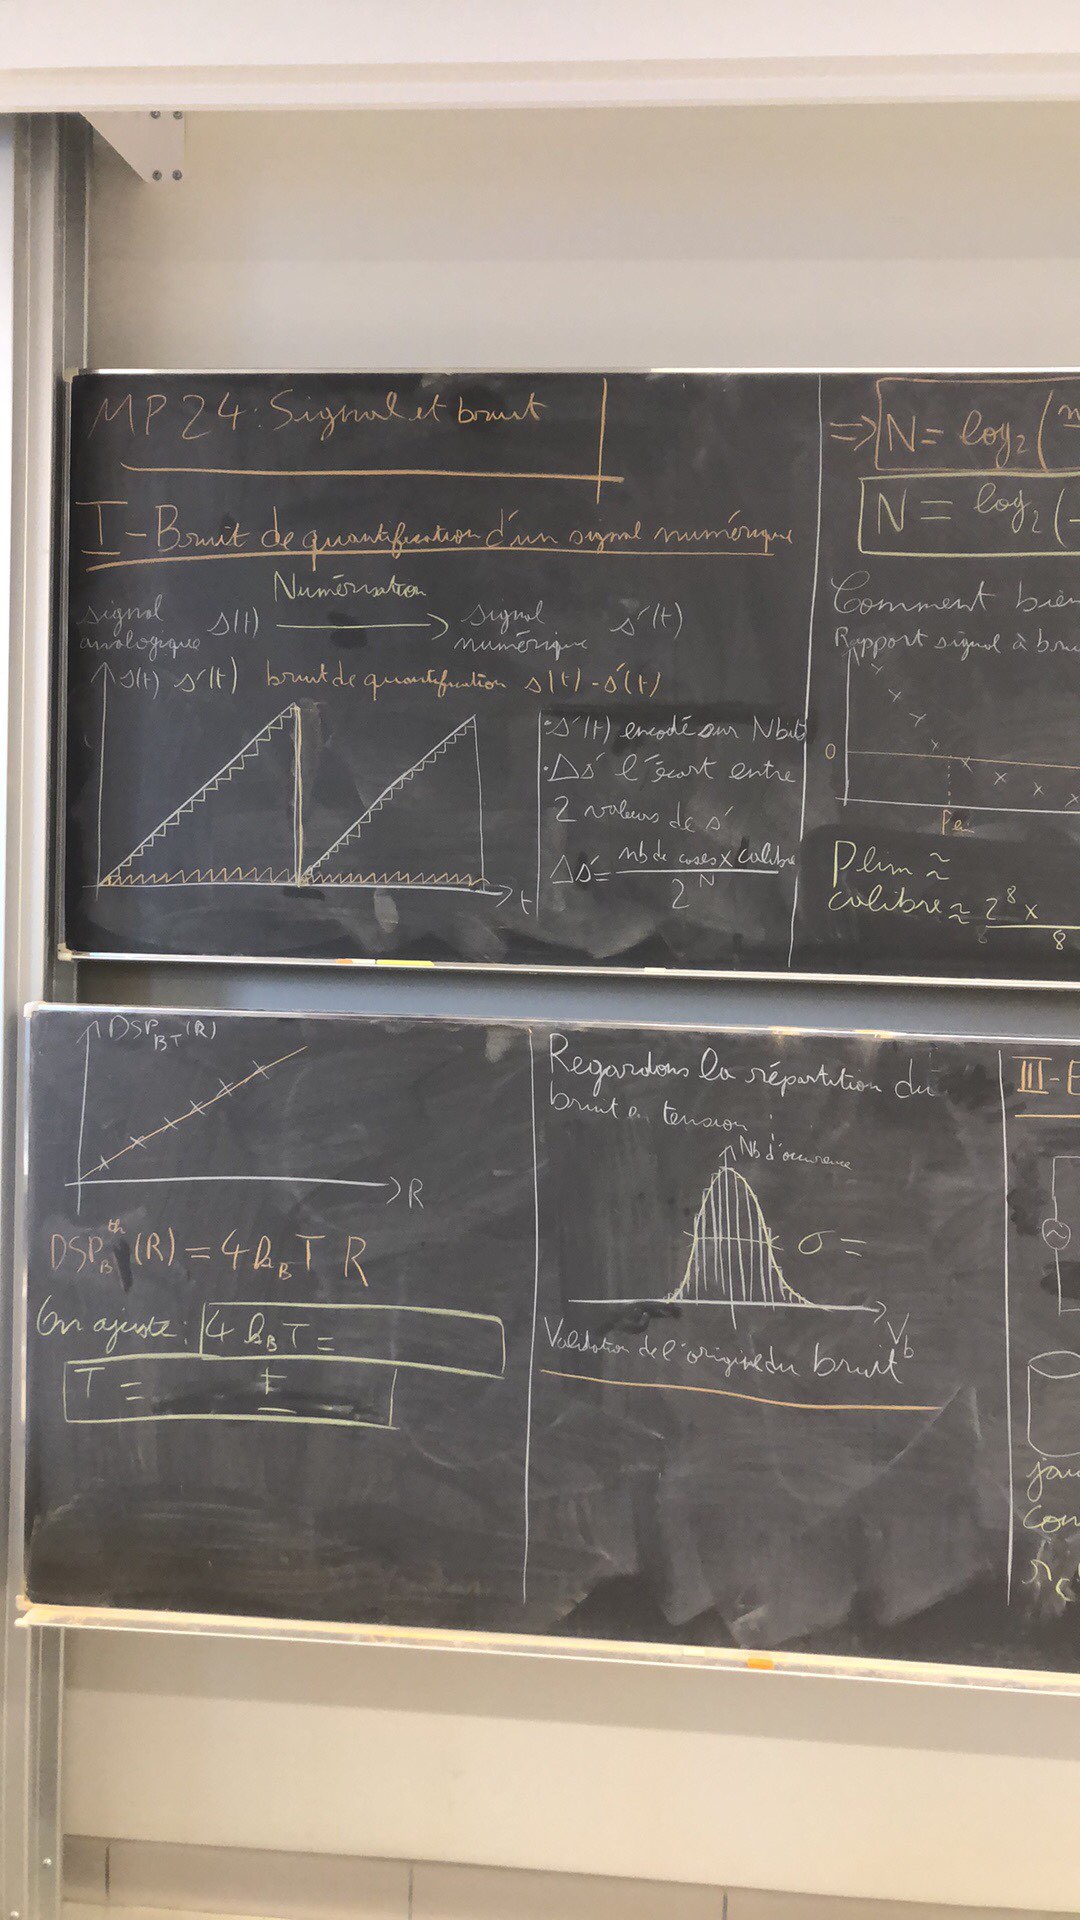 MP24: Signal et bruit
I - Bruit de quantification d'un signal numérique
Numérisation
signal analogique s(t) → signal numérique s'(t)
s(t) s'(t) bruit de quantification s(t) - s'(t)
t
• s'(t) encodé sur N bits
• Δs' l'écart entre
2 valeurs de s'
Δs' = nb de cases × calibre / 2^N
⇒ N = log₂(
N = log₂(
Comment bien
Rapport signal à bru
0
Plim ≈
calibre ≈ 2⁸ × / 8
DSP_BT(R)
R
DSP_B^th(R) = 4 k_B T R
On ajuste : 4 k_B T =
T = ±
Regardons la répartition du
bruit en tension :
Nb d'occurence
σ =
V_b
Validation de l'origine du bruit
III - E